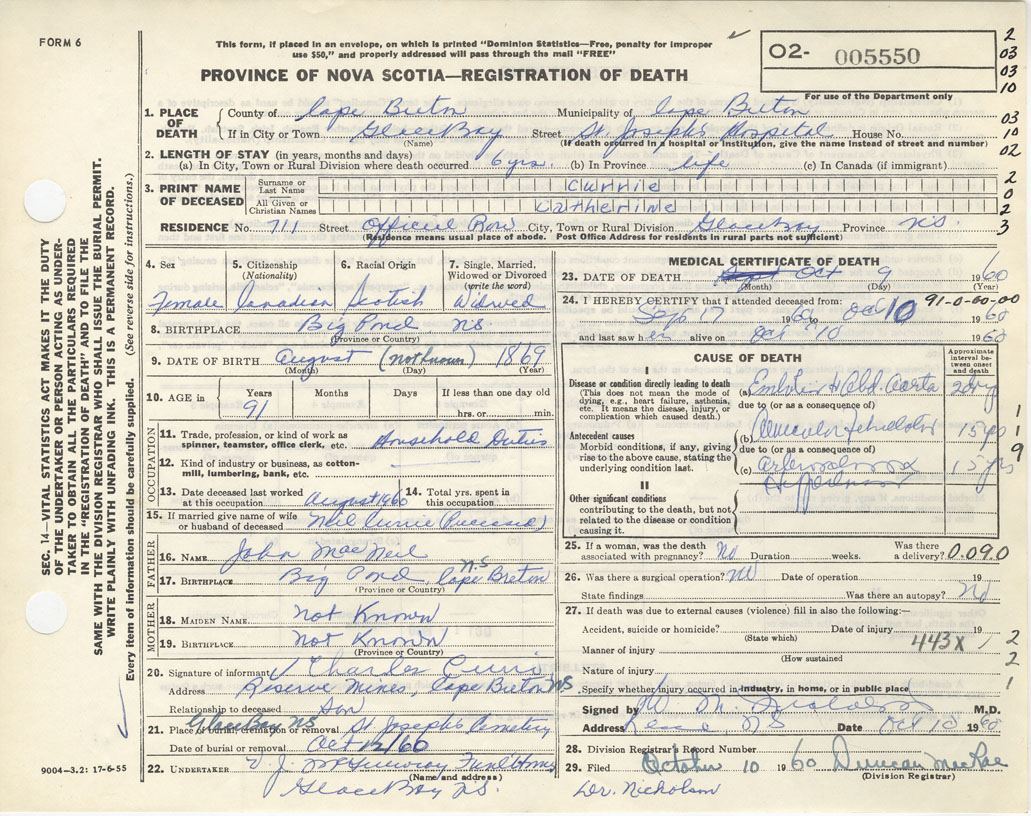 FORM 6
This form, if placed in an envelope, on which is printed "Dominion Statistics—Free, penalty for improper
use $50," and properly addressed will pass through the mail "FREE"
PROVINCE OF NOVA SCOTIA—REGISTRATION OF DEATH
02- 005550
For use of the Department only
2
03
03
10
03
10
02
2
0
2
3
1. PLACE OF DEATH
County of Cape Breton Municipality of Cape Breton
If in City or Town Glace Bay Street St. Joseph's Hospital House No.
(Name) (If death occurred in a hospital or institution, give the name instead of street and number)
2. LENGTH OF STAY (in years, months and days)
(a) In City, Town or Rural Division where death occurred 6 yrs. (b) In Province life (c) In Canada (if immigrant)
3. PRINT NAME OF DECEASED
Surname or Last Name Currie
All Given or Christian Names Catherine
RESIDENCE No. 711 Street Official Row City, Town or Rural Division Glace Bay Province N.S.
(Residence means usual place of abode. Post Office Address for residents in rural parts not sufficient)
4. Sex
Female
5. Citizenship (Nationality)
Canadian
6. Racial Origin
Scotish
7. Single, Married, Widowed or Divorced (write the word)
Widowed
8. BIRTHPLACE Big Pond N.S.
(Province or Country)
9. DATE OF BIRTH August (not known) 1869
(Month) (Day) (Year)
10. AGE in Years Months Days If less than one day old
91 hrs. or min.
OCCUPATION
11. Trade, profession, or kind of work as spinner, teamster, office clerk, etc. Household Duties
12. Kind of industry or business, as cotton-mill, lumbering, bank, etc.
13. Date deceased last worked at this occupation August 1960
14. Total yrs. spent in this occupation
15. If married give name of wife or husband of deceased Neil Currie (Deceased)
FATHER
16. NAME John MacNeil
17. BIRTHPLACE Big Pond, Cape Breton N.S
(Province or Country)
MOTHER
18. MAIDEN NAME Not Known
19. BIRTHPLACE Not Known
(Province or Country)
20. Signature of informant Charles Currie
Address Reserve Mines, Cape Breton NS
Relationship to deceased Son
21. Place of burial cremation or removal Glace Bay NS St Joseph's Cemetery
Date of burial or removal Oct 12/60
22. UNDERTAKER
(Name and address)
Glace Bay N.S.
9004-3.2: 17-6-55
MEDICAL CERTIFICATE OF DEATH
23. DATE OF DEATH Oct 9 1960
(Month) (Day) (Year)
24. I HEREBY CERTIFY that I attended deceased from: 91-0-00-00
Sept 17 1960 to Oct 10 1960
and last saw her alive on Oct 10 1960
CAUSE OF DEATH
Approximate interval between onset and death
I
Disease or condition directly leading to death
(This does not mean the mode of dying, e.g., heart failure, asthenia, etc. It means the disease, injury, or complication which caused death.)
(a) Abd. Aorta
due to (or as a consequence of)
Antecedent causes
Morbid conditions, if any, giving rise to the above cause, stating the underlying condition last.
(b) Auricular fibrillation 15 yrs
due to (or as a consequence of)
(c) 15 yrs
II
Other significant conditions
contributing to the death, but not related to the disease or condition causing it.
1
1
9
25. If a woman, was the death associated with pregnancy? No Duration weeks. Was there a delivery? 0.090
26. Was there a surgical operation? No Date of operation 19
State findings Was there an autopsy? No
27. If death was due to external causes (violence) fill in also the following:—
Accident, suicide or homicide? Date of injury 19
(State which) 443X 1 2
Manner of injury
(How sustained) 2
Nature of injury
Specify whether injury occurred in industry, in home, or in public place 1
Signed by M.D.
Address NS Date Oct 10 1960
28. Division Registrar's Record Number
29. Filed October 10 1960 Duncan MacRae
(Division Registrar)
Dr. Nicholson
SEC. 14—VITAL STATISTICS ACT MAKES IT THE DUTY
OF THE UNDERTAKER OR PERSON ACTING AS UNDER-
TAKER TO OBTAIN ALL THE PARTICULARS REQUIRED
IN THE "REGISTRATION OF DEATH" AND TO FILE THE
SAME WITH THE DIVISION REGISTRAR WHO SHALL ISSUE THE BURIAL PERMIT.
WRITE PLAINLY WITH UNFADING INK. THIS IS A PERMANENT RECORD.
Every item of information should be carefully supplied. (See reverse side for instructions.)